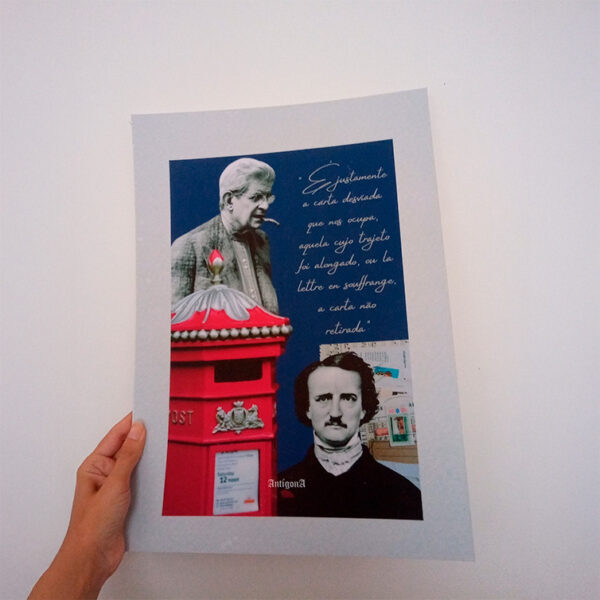 " É justamente
a carta desviada
que nos ocupa,
aquela cujo trajeto
foi alongado, ou la
lettre en souffrange,
a carta não
retirada"
POST
Saturday
12 noon
AntígonA